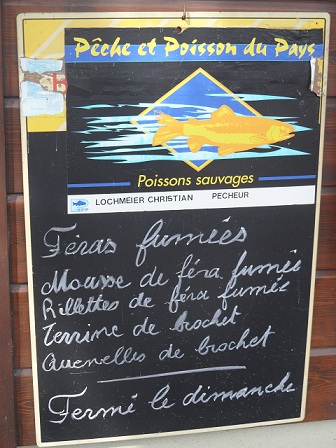 Pêche et Poisson du Pays
Poissons sauvages
LOCHMEIER CHRISTIAN PECHEUR
Féras fumées
Mousse de féra fumée
Rillettes de féra fumée
Terrine de brochet
Quenelles de brochet
Fermé le dimanche